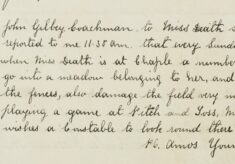 John Gilbey Coachman to Miss Death s
reported to me 11.30 am. that every Sunda
when Miss Death is at Chaple a number
go into a meadow belonging to her, and
the fences, also damage the field very m
playing a game at Pitch and Toss, M
wishes a Constable to look round there
P.C. Amos Youn